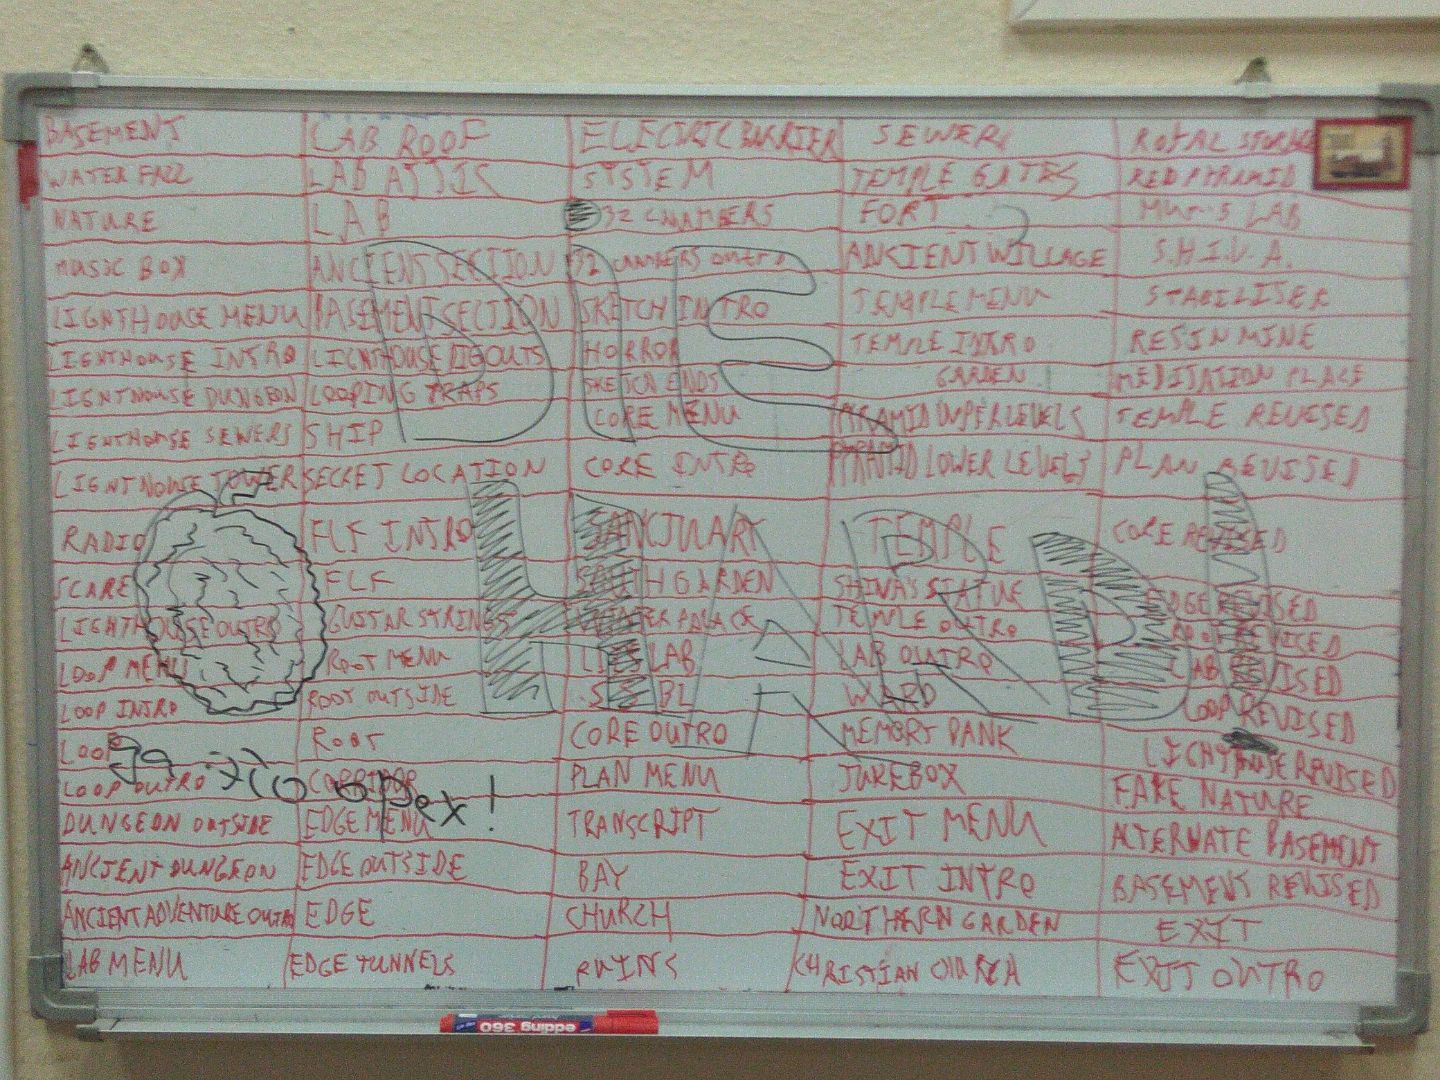 BASEMENT LAB ROOF ELECTRIC BARRIER SEWER ROYAL STORAGE
WATERFALL LAB ATTIC SYSTEM TEMPLE GATES RED PYRAMID
NATURE LAB 32 CHAMBERS FORT LAB
MUSIC BOX ANCIENT SECTION 32 CHAMBERS OUTRO ANCIENT WILLAGE S.H.I.V.A.
LIGHTHOUSE MENU BASEMENT SECTION SKETCH INTRO TEMPLE MENU STABILISER
LIGHTHOUSE INTRO LIGHTHOUSE DIGOUTS HORROR TEMPLE INTRO RESIN MINE
LIGHTHOUSE DUNGEON LOOPING TRAPS SKETCH ENDS GARDEN MEDITATION PLACE
LIGHTHOUSE SEWERS SHIP CORE MENU PYRAMID UPPER LEVELS TEMPLE REVISED
LIGHTHOUSE TOWER SECRET LOCATION CORE INTRO PYRAMID LOWER LEVELS PLAN REVISED
RADIO ELF INTRO SANCTUARY TEMPLE CORE REVISED
SCARE ELF SOUTH GARDEN SHIVA'S STATUE EDGE REVISED
LIGHTHOUSE OUTRO GUITAR STRINGS PALACE TEMPLE OUTRO ROOT REVISED
LOOP MENU ROOT MENU LAB LAB OUTRO LAB REVISED
LOOP INTRO ROOT OUTSIDE WARD LOOP REVISED
LOOP ROOT CORE OUTRO MEMORY BANK LIGHTHOUSE REVISED
LOOP OUTRO CORRIDOR PLAN MENU JUKEBOX FAKE NATURE
DUNGEON OUTSIDE EDGE MENU TRANSCRIPT EXIT MENU ALTERNATE BASEMENT
ANCIENT DUNGEON EDGE OUTSIDE BAY EXIT INTRO BASEMENT REVISED
ANCIENT ADVENTURE OUTRO EDGE CHURCH NORTHERN GARDEN EXIT
LAB MENU EDGE TUNNELS RUINS CHRISTIAN CHURCH EXIT OUTRO
DIE
HARD!
edding 360